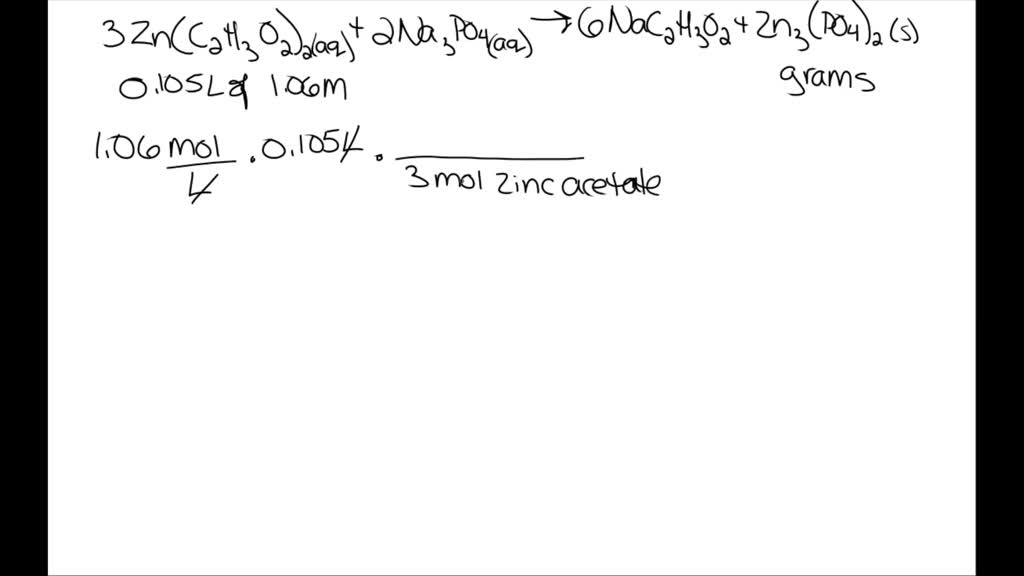 3Zn(C₂H₃O₂)₂(aq) + 2Na₃PO₄(aq) → 6NaC₂H₃O₂ + Zn₃(PO₄)₂(s)
0.105L of 1.06M grams
1.06 mol/L · 0.105L · /3 mol zinc acetate